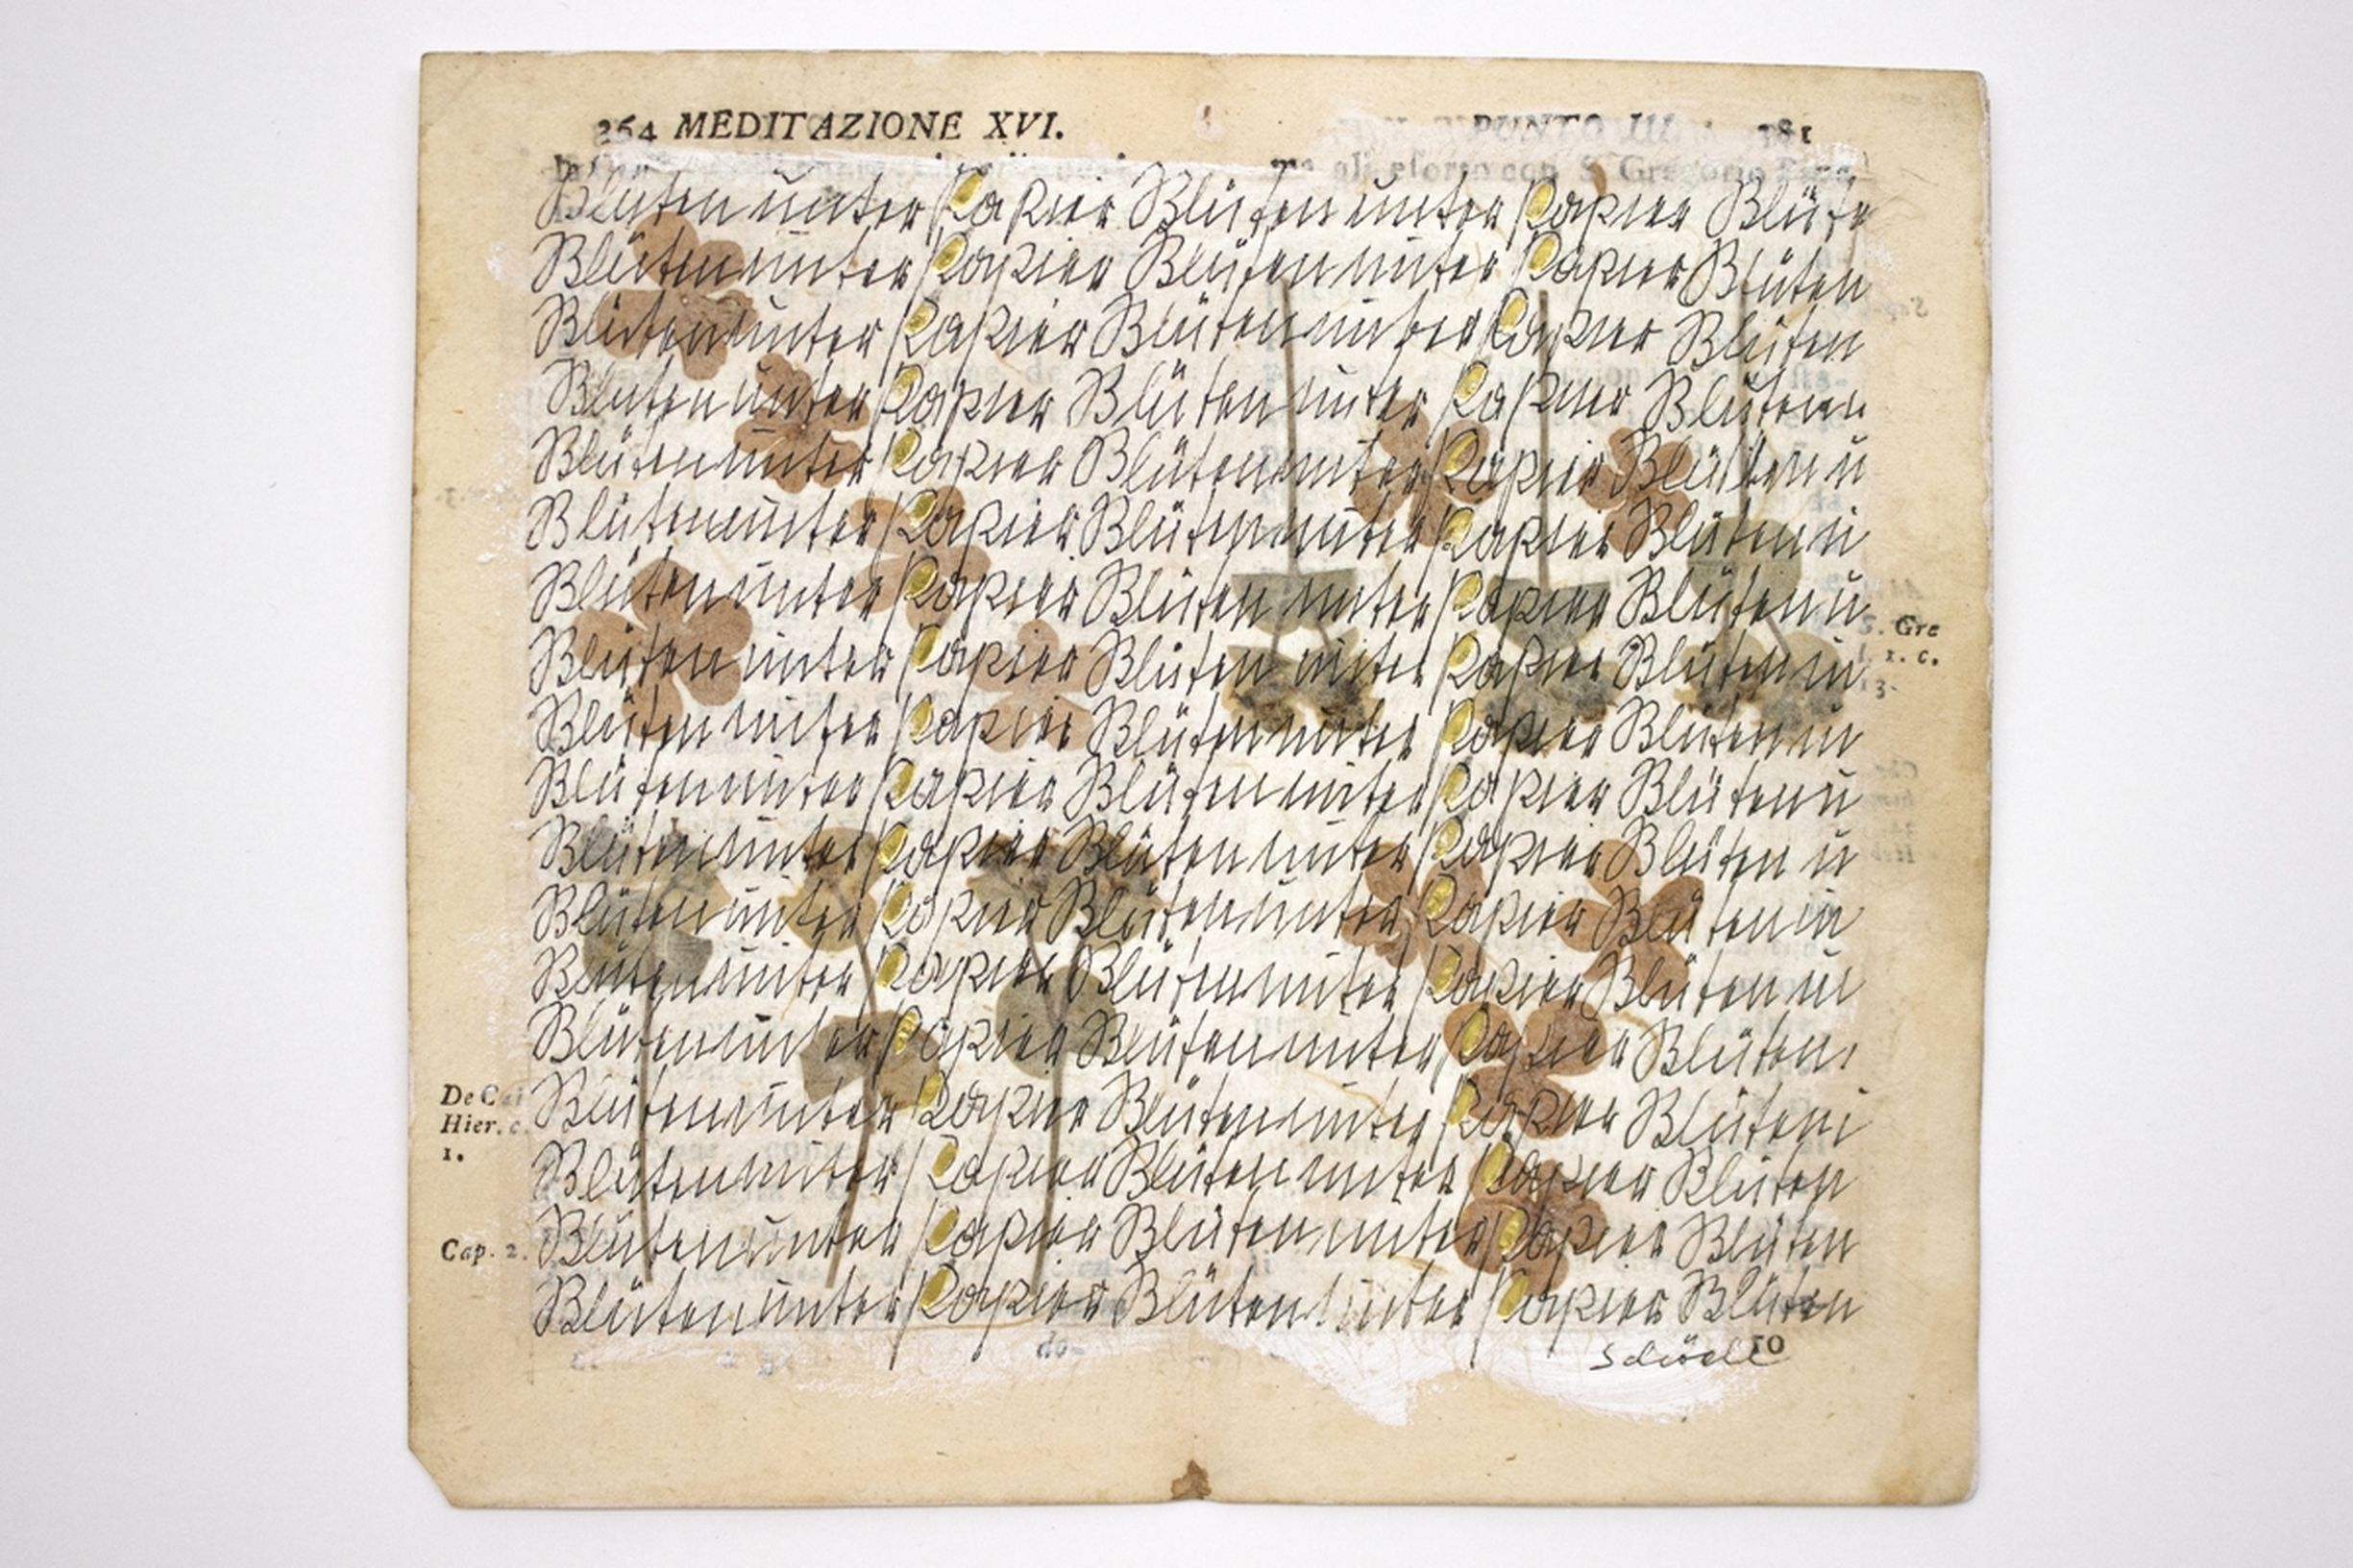 264 MEDITAZIONE XVI. PUNTO III. 381
ma gli esorto con S. Gregorio
Blüten unter Papier Blüten unter Papier Blüte
Blüten unter Papier Blüten unter Papier Blüten
Blüten unter Papier Blüten unter Papier Blüten
Blüten unter Papier Blüten unter Papier Blüten
Blüten unter Papier Blüten unter Papier Blüten u
Blüten unter Papier Blüten unter Papier Blüten u
Blüten unter Papier Blüten unter Papier Blüten u
Blüten unter Papier Blüten unter Papier Blüten u
Blüten unter Papier Blüten unter Papier Blüten u
Blüten unter Papier Blüten unter Papier Blüten u
Blüten unter Papier Blüten unter Papier Blüten u
Blüten unter Papier Blüten unter Papier Blüten u
Blüten unter Papier Blüten unter Papier Blüten u
Blüten unter Papier Blüten unter Papier Blüten
Blüten unter Papier Blüten unter Papier Blüten
Blüten unter Papier Blüten unter Papier Blüten
Blüten unter Papier Blüten unter Papier Blüten
Blüten unter Papier Blüten unter Papier Blüten
do-
10
S. Gre
l. 1. c.
13.
De
Hier. c.
1.
Cap. 2.